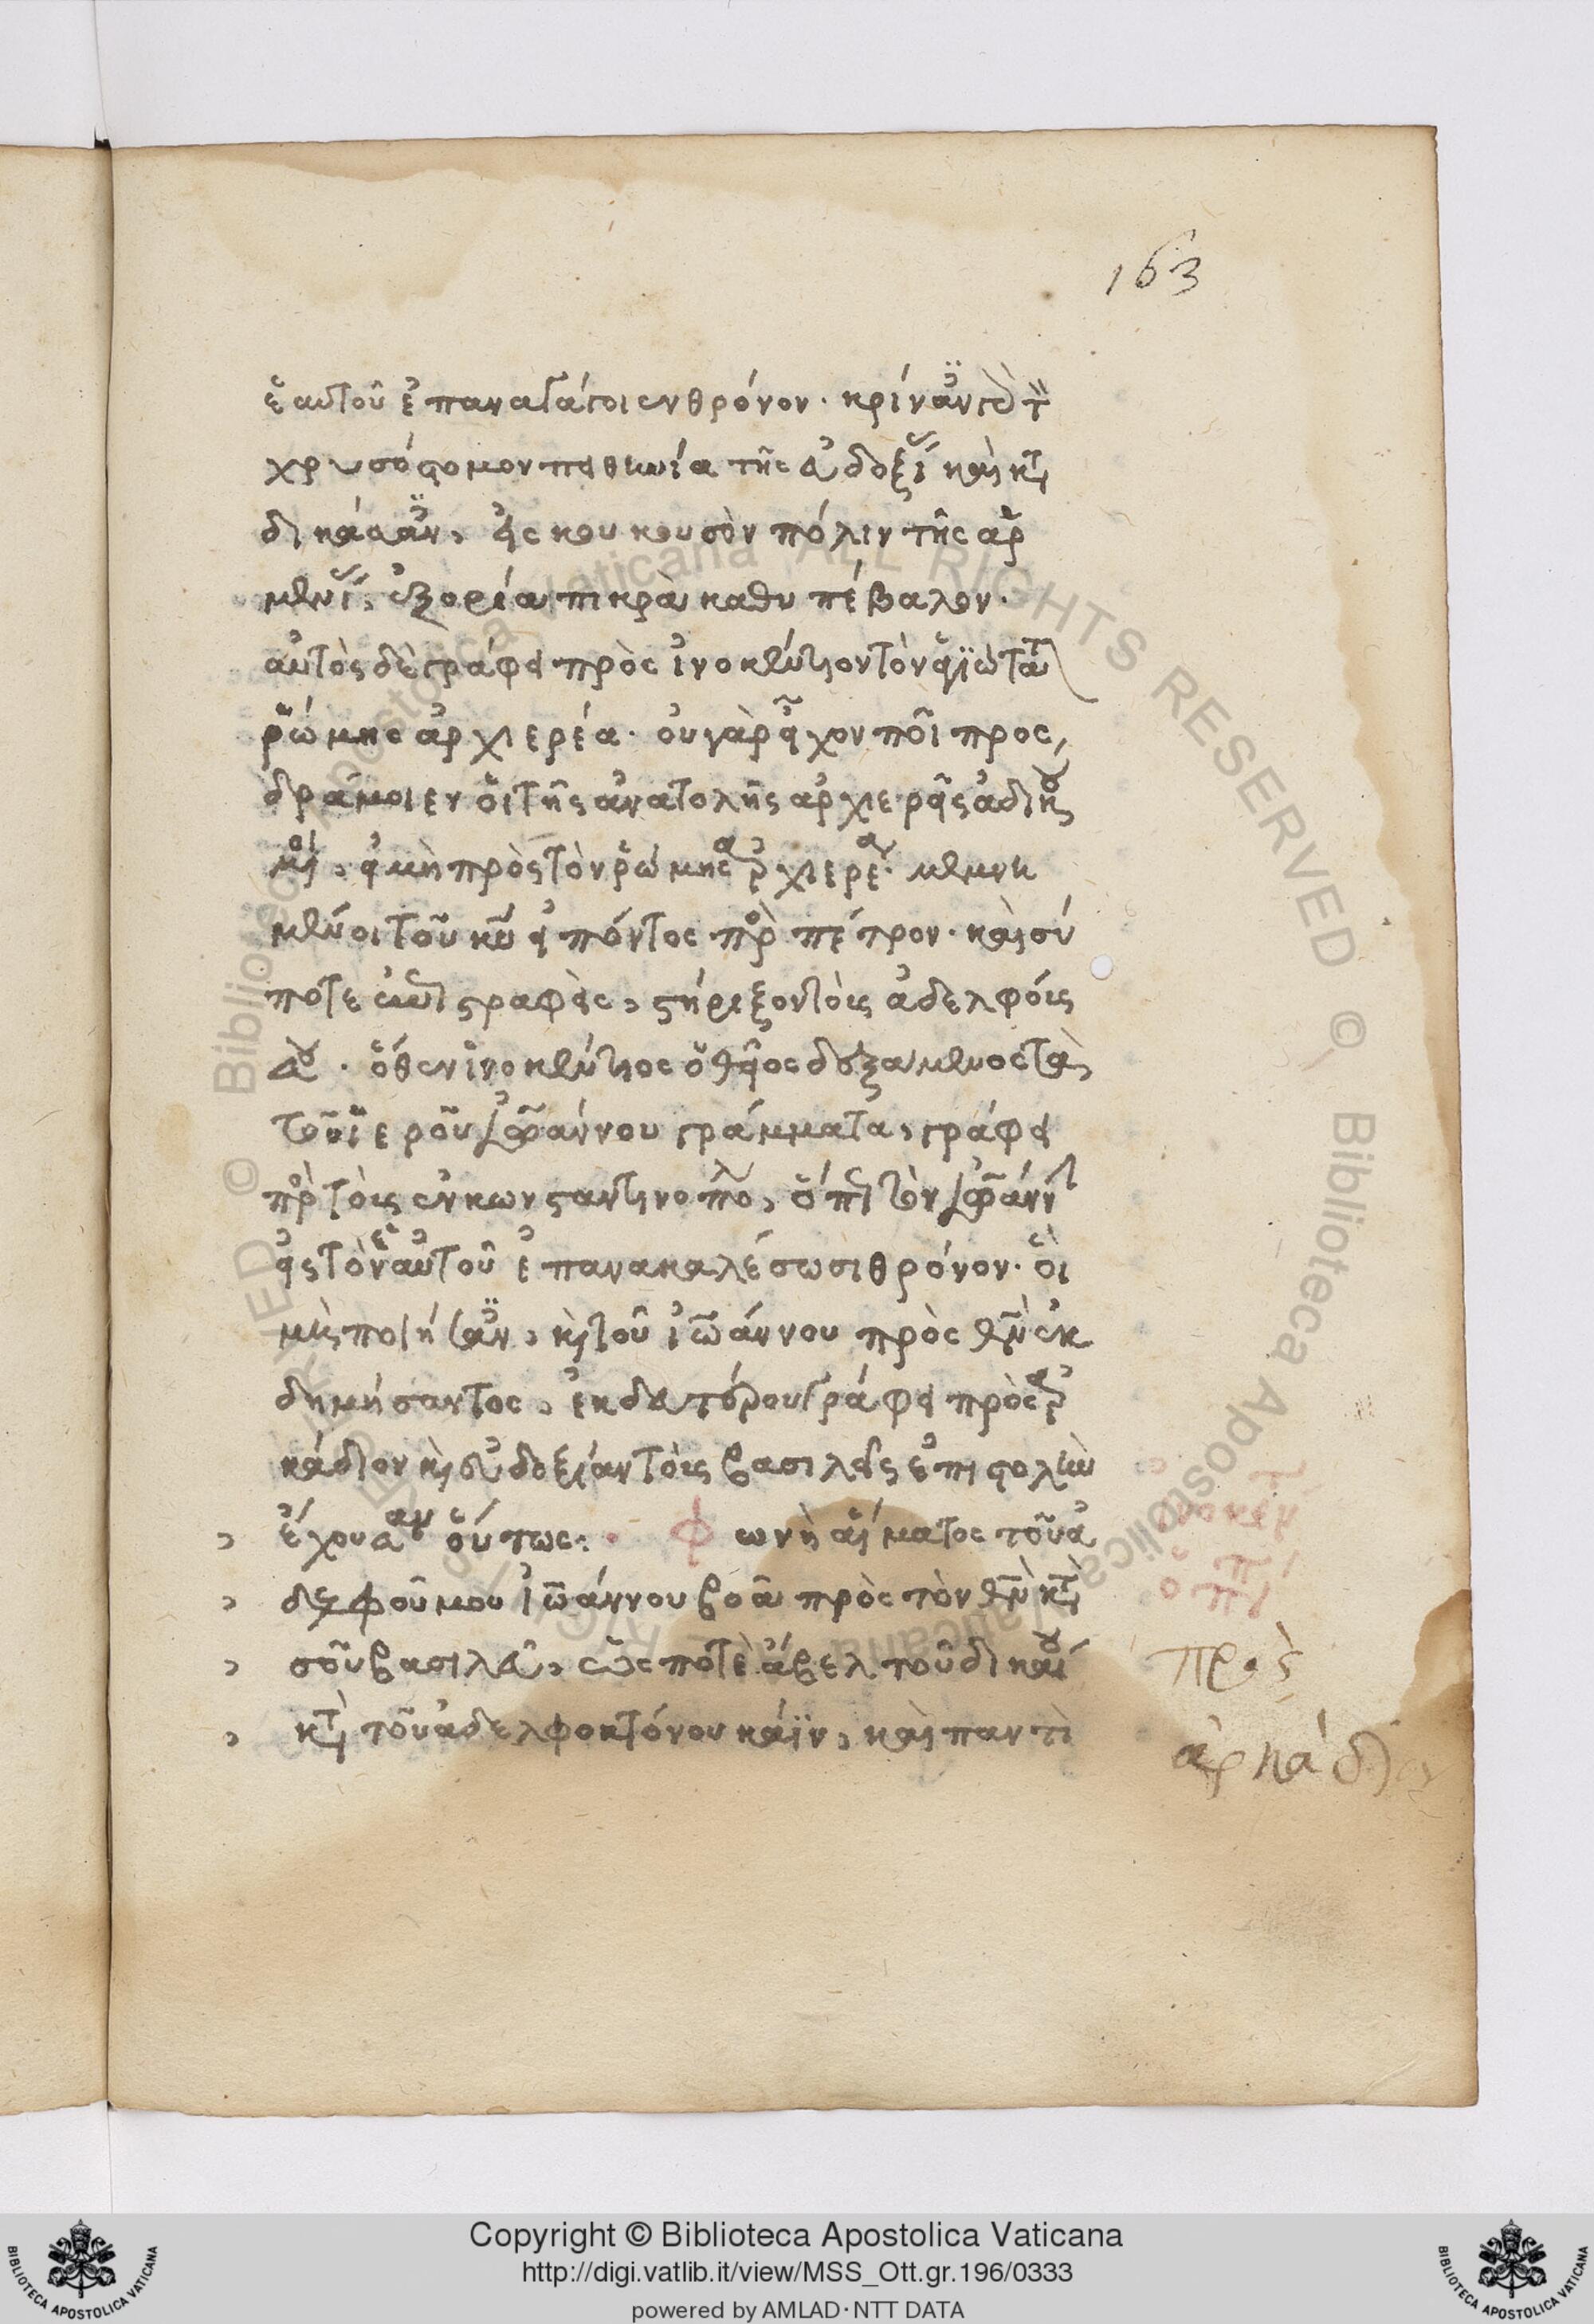 163
ἑαυτοῦ ἐπαναστάτοιεν θρόνον· κρίναντες τ
χρυσόστομον πειθηνία τῆς εὐδοξί καὶ κατ
δικάσαν, εἰς κουκουσὸν πόλιν τῆς ἀρ
μενί, ἐξορία πικρᾶ καθυπέβαλον·
αὐτὸς δὲ γράφει πρὸς ἰνοκέντιον τὸν ἁγιώτατ
ῥώμης ἀρχιερέα· οὐ γὰρ εἶχον ποῖ προς
δράμοιεν οἱ τῆς ἀνατολῆς ἀρχιερεῖς ἀδικού
μενοι, εἰ μὴ πρὸς τὸν ῥώμης ἀρχιερέα· μεμνη
μένοι τοῦ κυ εἰπόντος πρὸ πέτρον· καὶ σύ
ποτε ἐπιστραφεὶς, στήριξον τοὺς ἀδελφούς
σου· ὅθεν ἰνοκέντιος ὁ θεῖος δεξάμενος τὰ
τοῦ ἱεροῦ ἰωάννου γράμματα, γράφει
πρὸ τοὺς ἐν κωνσταντινοπόλ, ὅπ τὸν ἰωάνν
εἰς τὸν ἑαυτοῦ ἐπανακαλέσωσι θρόνον· οἱ
μὴ ποιήσαν, καὶ τοῦ ἰωάννου πρὸς θν ἐκ
δημήσαντος, ἐκ δευτέρου γράφει πρὸς ἀρ
κάδιον καὶ εὐδοξίαν τοὺς βασιλεῖς ἐπιστολὴν
ἔχουσαν οὕτως: Φωνὴ αἵματος τοῦ ἀ
δελφοῦ μου ἰωάννου βοᾶ πρὸς τὸν θν κατὰ
σοῦ βασιλεῦ, ὥς ποτὲ ἄβελ τοῦ δικαίου
κατὰ τοῦ ἀδελφοκτόνου κάϊν, καὶ παντὶ
πρὸς
ἀρκάδιον
Copyright © Biblioteca Apostolica Vaticana
http://digi.vatlib.it/view/MSS_Ott.gr.196/0333
powered by AMLAD·NTT DATA